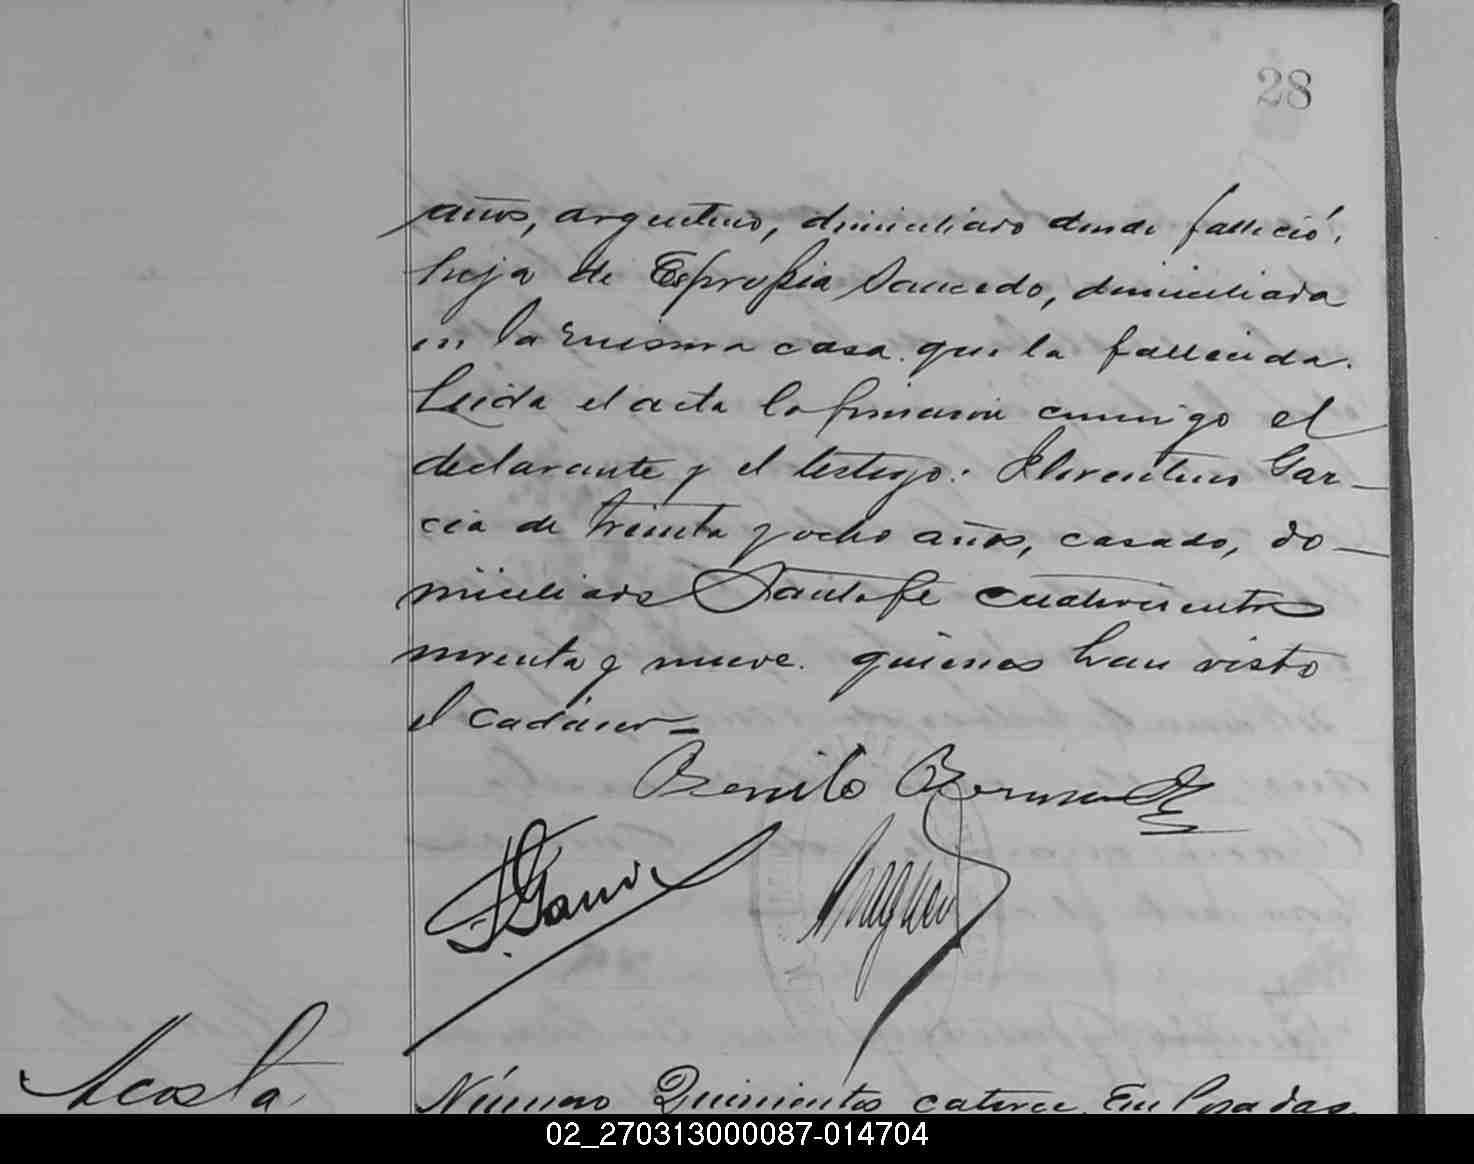 28
años, argentino, domiciliado donde falleció,
hija de Espropia Saucedo, domiciliada
en la misma casa que la fallecida.
Leida el acta la firmaron conmigo el
declarante y el testigo: Florentino Gar-
cia de treinta y ocho años, casado, do-
miciliado Santa fé cuatrocientos
noventa y nueve. quienes han visto
el cadáver-
Benito Bermudez
F. Garcia
Acosta
Número Quinientos catorce. En Posadas,
02_270313000087-014704